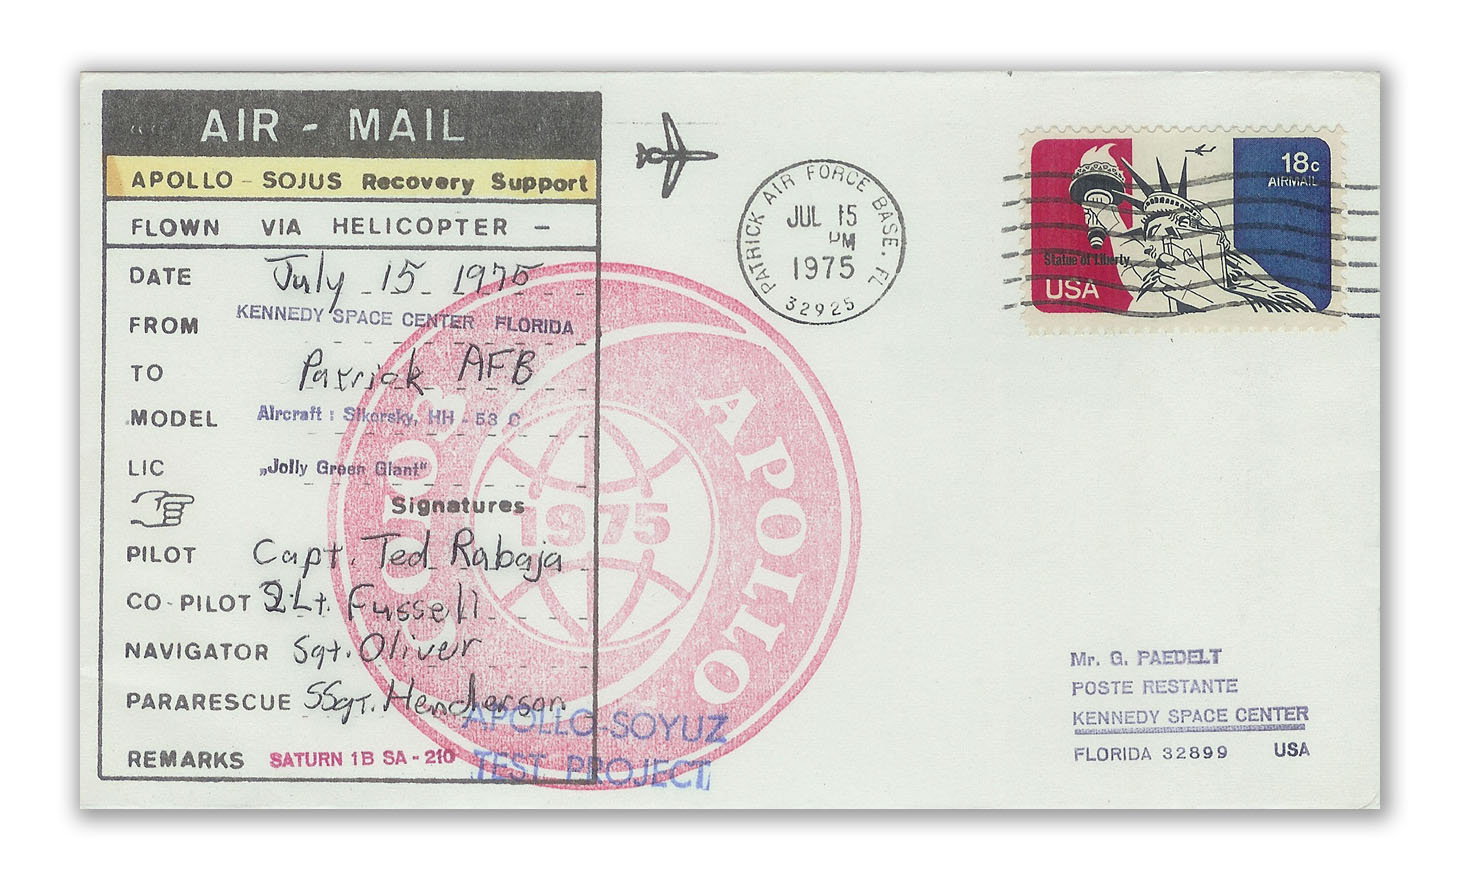 AIR - MAIL
APOLLO - SOJUS Recovery Support
FLOWN VIA HELICOPTER -
DATE July 15 1975
FROM KENNEDY SPACE CENTER FLORIDA
TO Patrick AFB
MODEL Aircraft : Sikorsky, HH - 53 C
LIC „Jolly Green Giant"
Signatures
PILOT Capt. Ted Rabaja
CO-PILOT 2Lt. Fussell
NAVIGATOR Sgt. Oliver
PARARESCUE SSgt. Henderson
REMARKS SATURN 1B SA - 210
СОЮЗ
АПОЛЛО
1975
APOLLO-SOYUZ
TEST PROJECT
PATRICK AIR FORCE BASE, FL
JUL 15
PM
1975
32925
18c
AIRMAIL
Statue of Liberty
USA
Mr. G. PAEDELT
POSTE RESTANTE
KENNEDY SPACE CENTER
FLORIDA 32899 USA